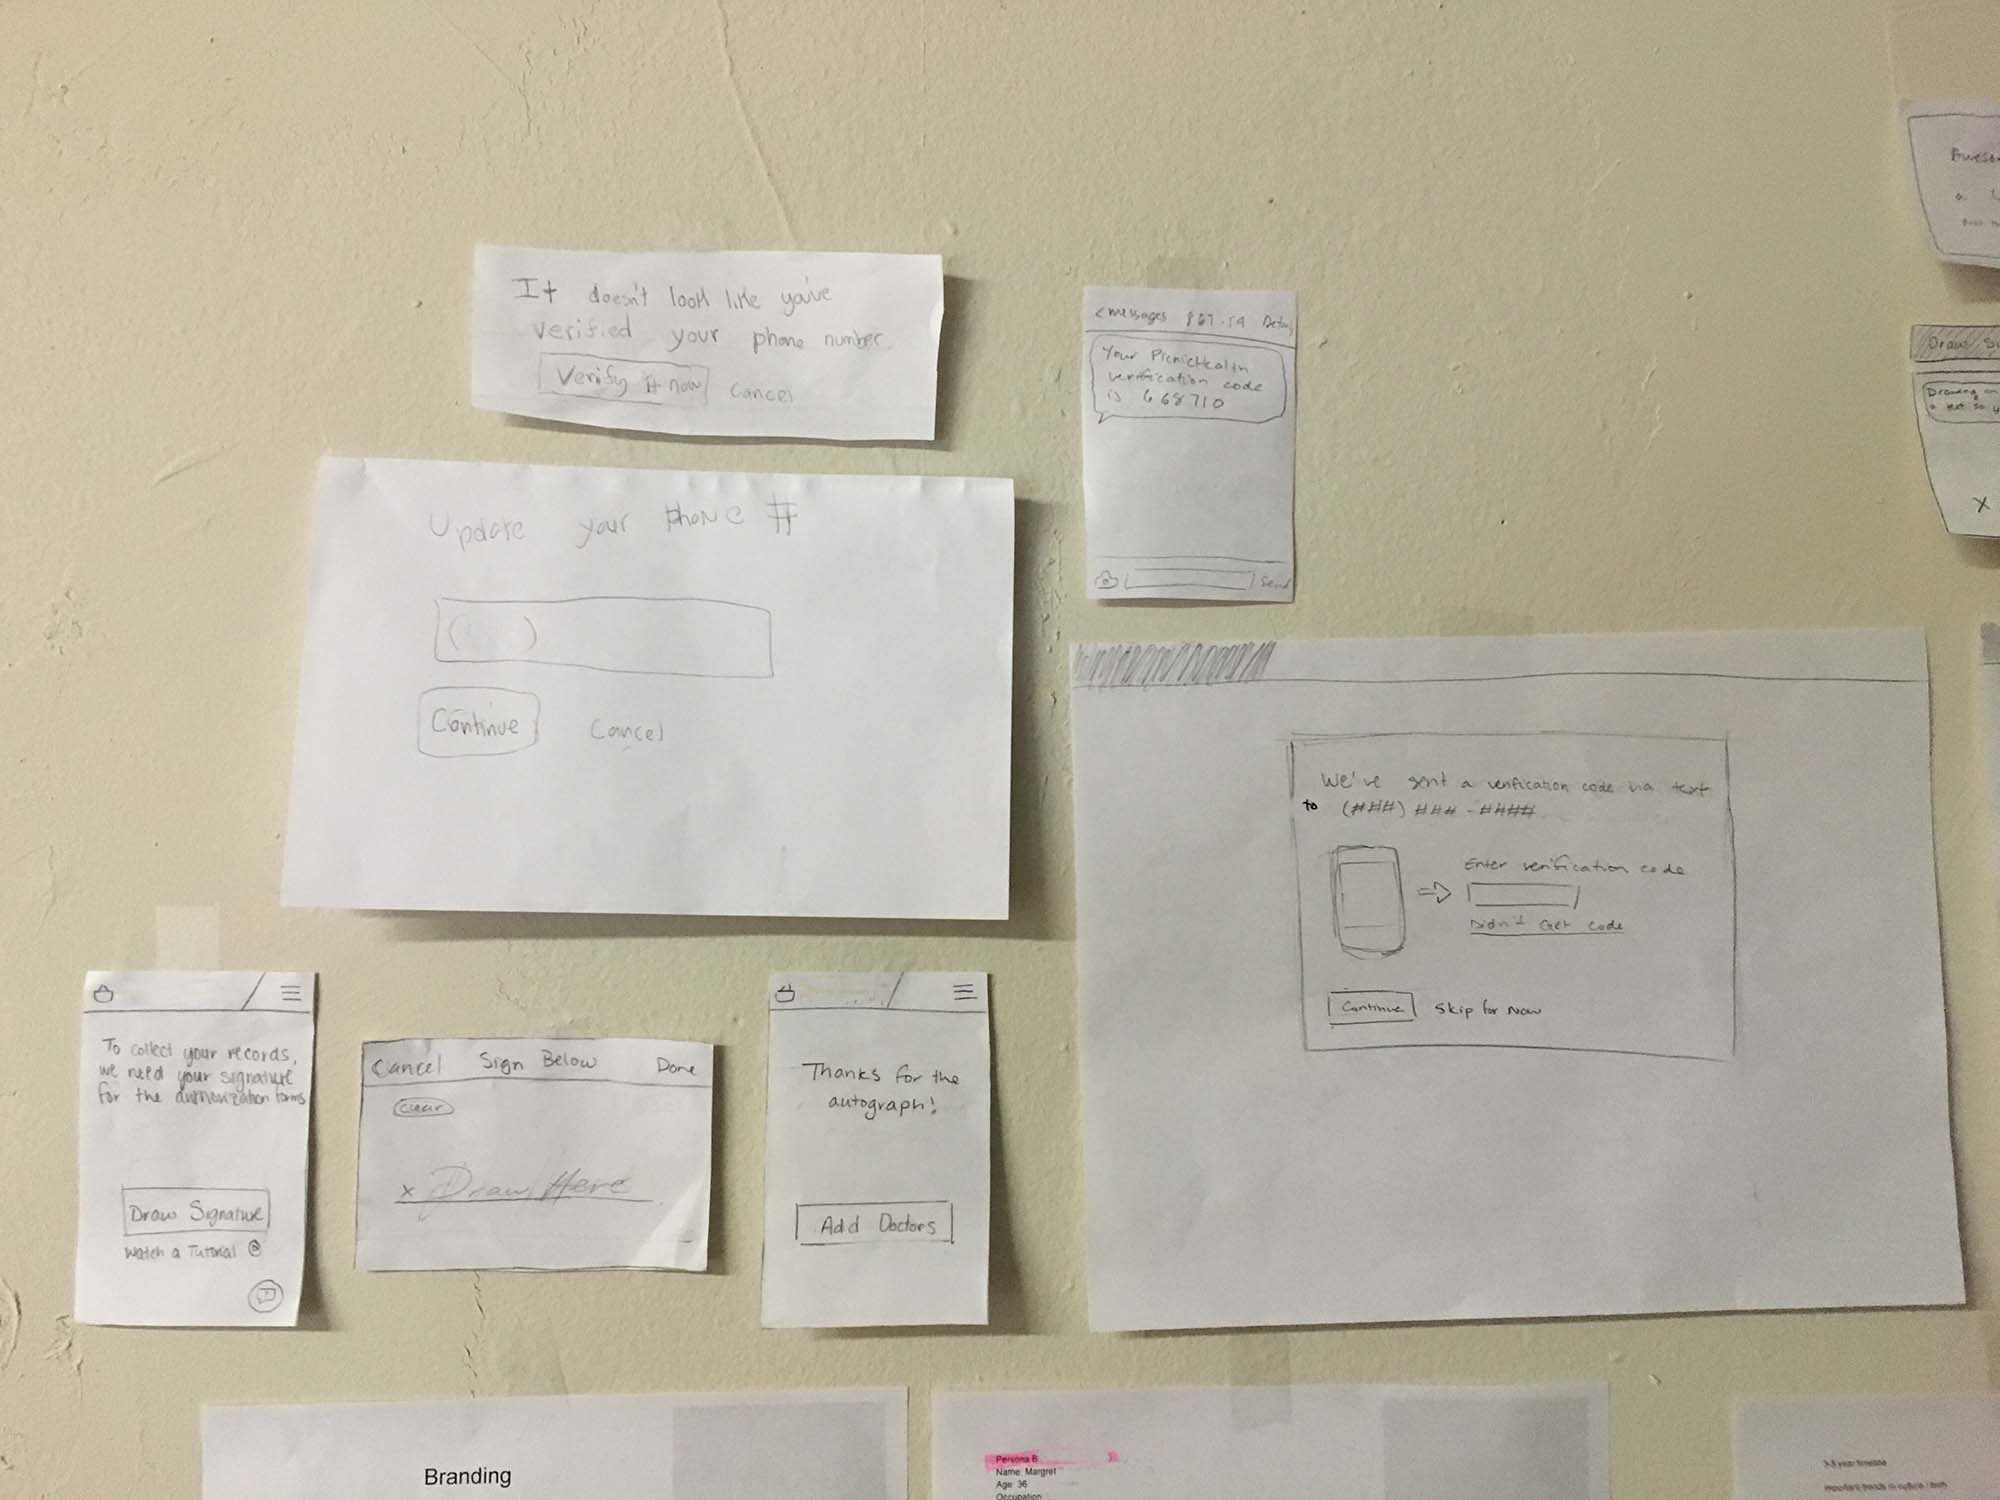 It doesn't look like you've
verified your phone number.
Verify it now
Cancel
< messages 867-54 Details
Your PicnicHealth
verification code
is 668710
Send
Update your phone #
( )
Continue
Cancel
We've sent a verfication code via text
to (###) ### - ####
Enter verification code
Didn't Get code
Continue
Skip for now
To collect your records,
we need your signature
for the authorization forms
Draw Signature
Watch a Tutorial
Cancel Sign Below Done
clear
x Draw Here
Thanks for the
autograph!
Add Doctors
Draw
Drawing on
X
Branding
Persona B
Name: Margret
Age: 36
Occupation
3-5 year timeline
important trends in culture / tech